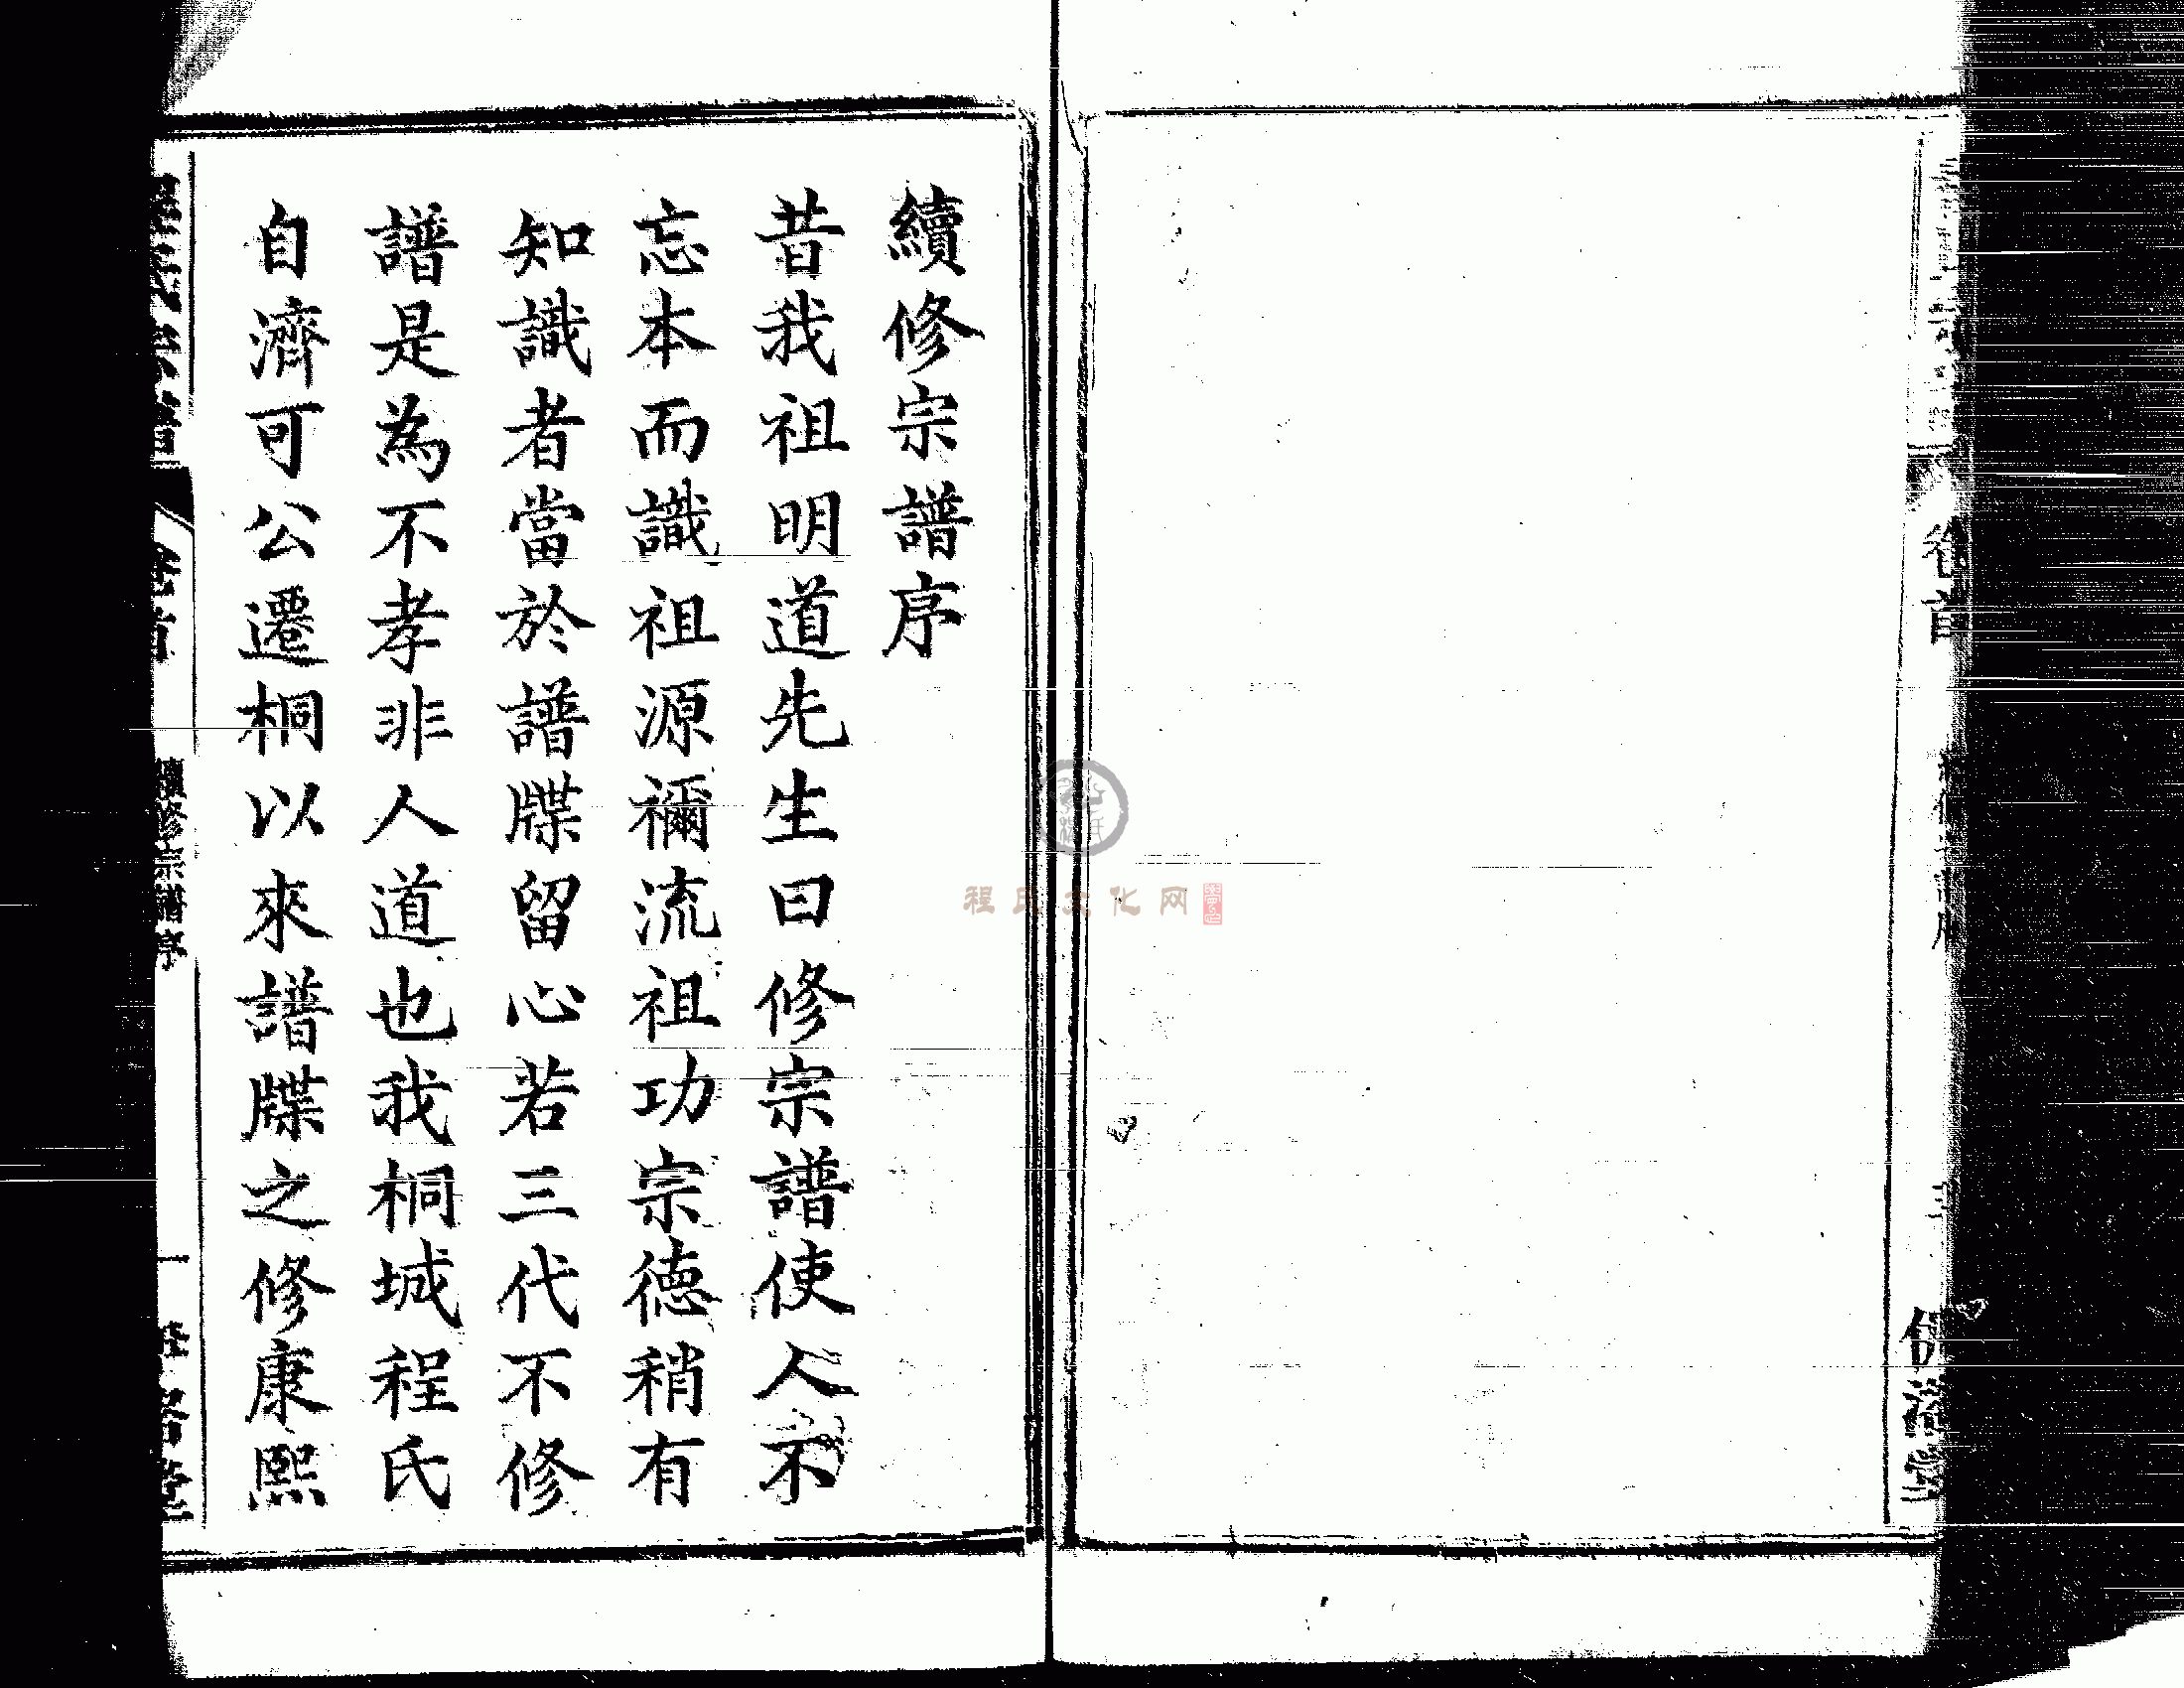 卷首
續修宗譜序
昔我祖明道先生曰修宗譜使人不
忘本而識祖源禰流祖功宗德稍有
知識者當於譜牒留心若三代不修
譜是為不孝非人道也我桐城程氏
自濟可公遷桐以來譜牒之修康熙
續修宗譜序
一
程氏文化网